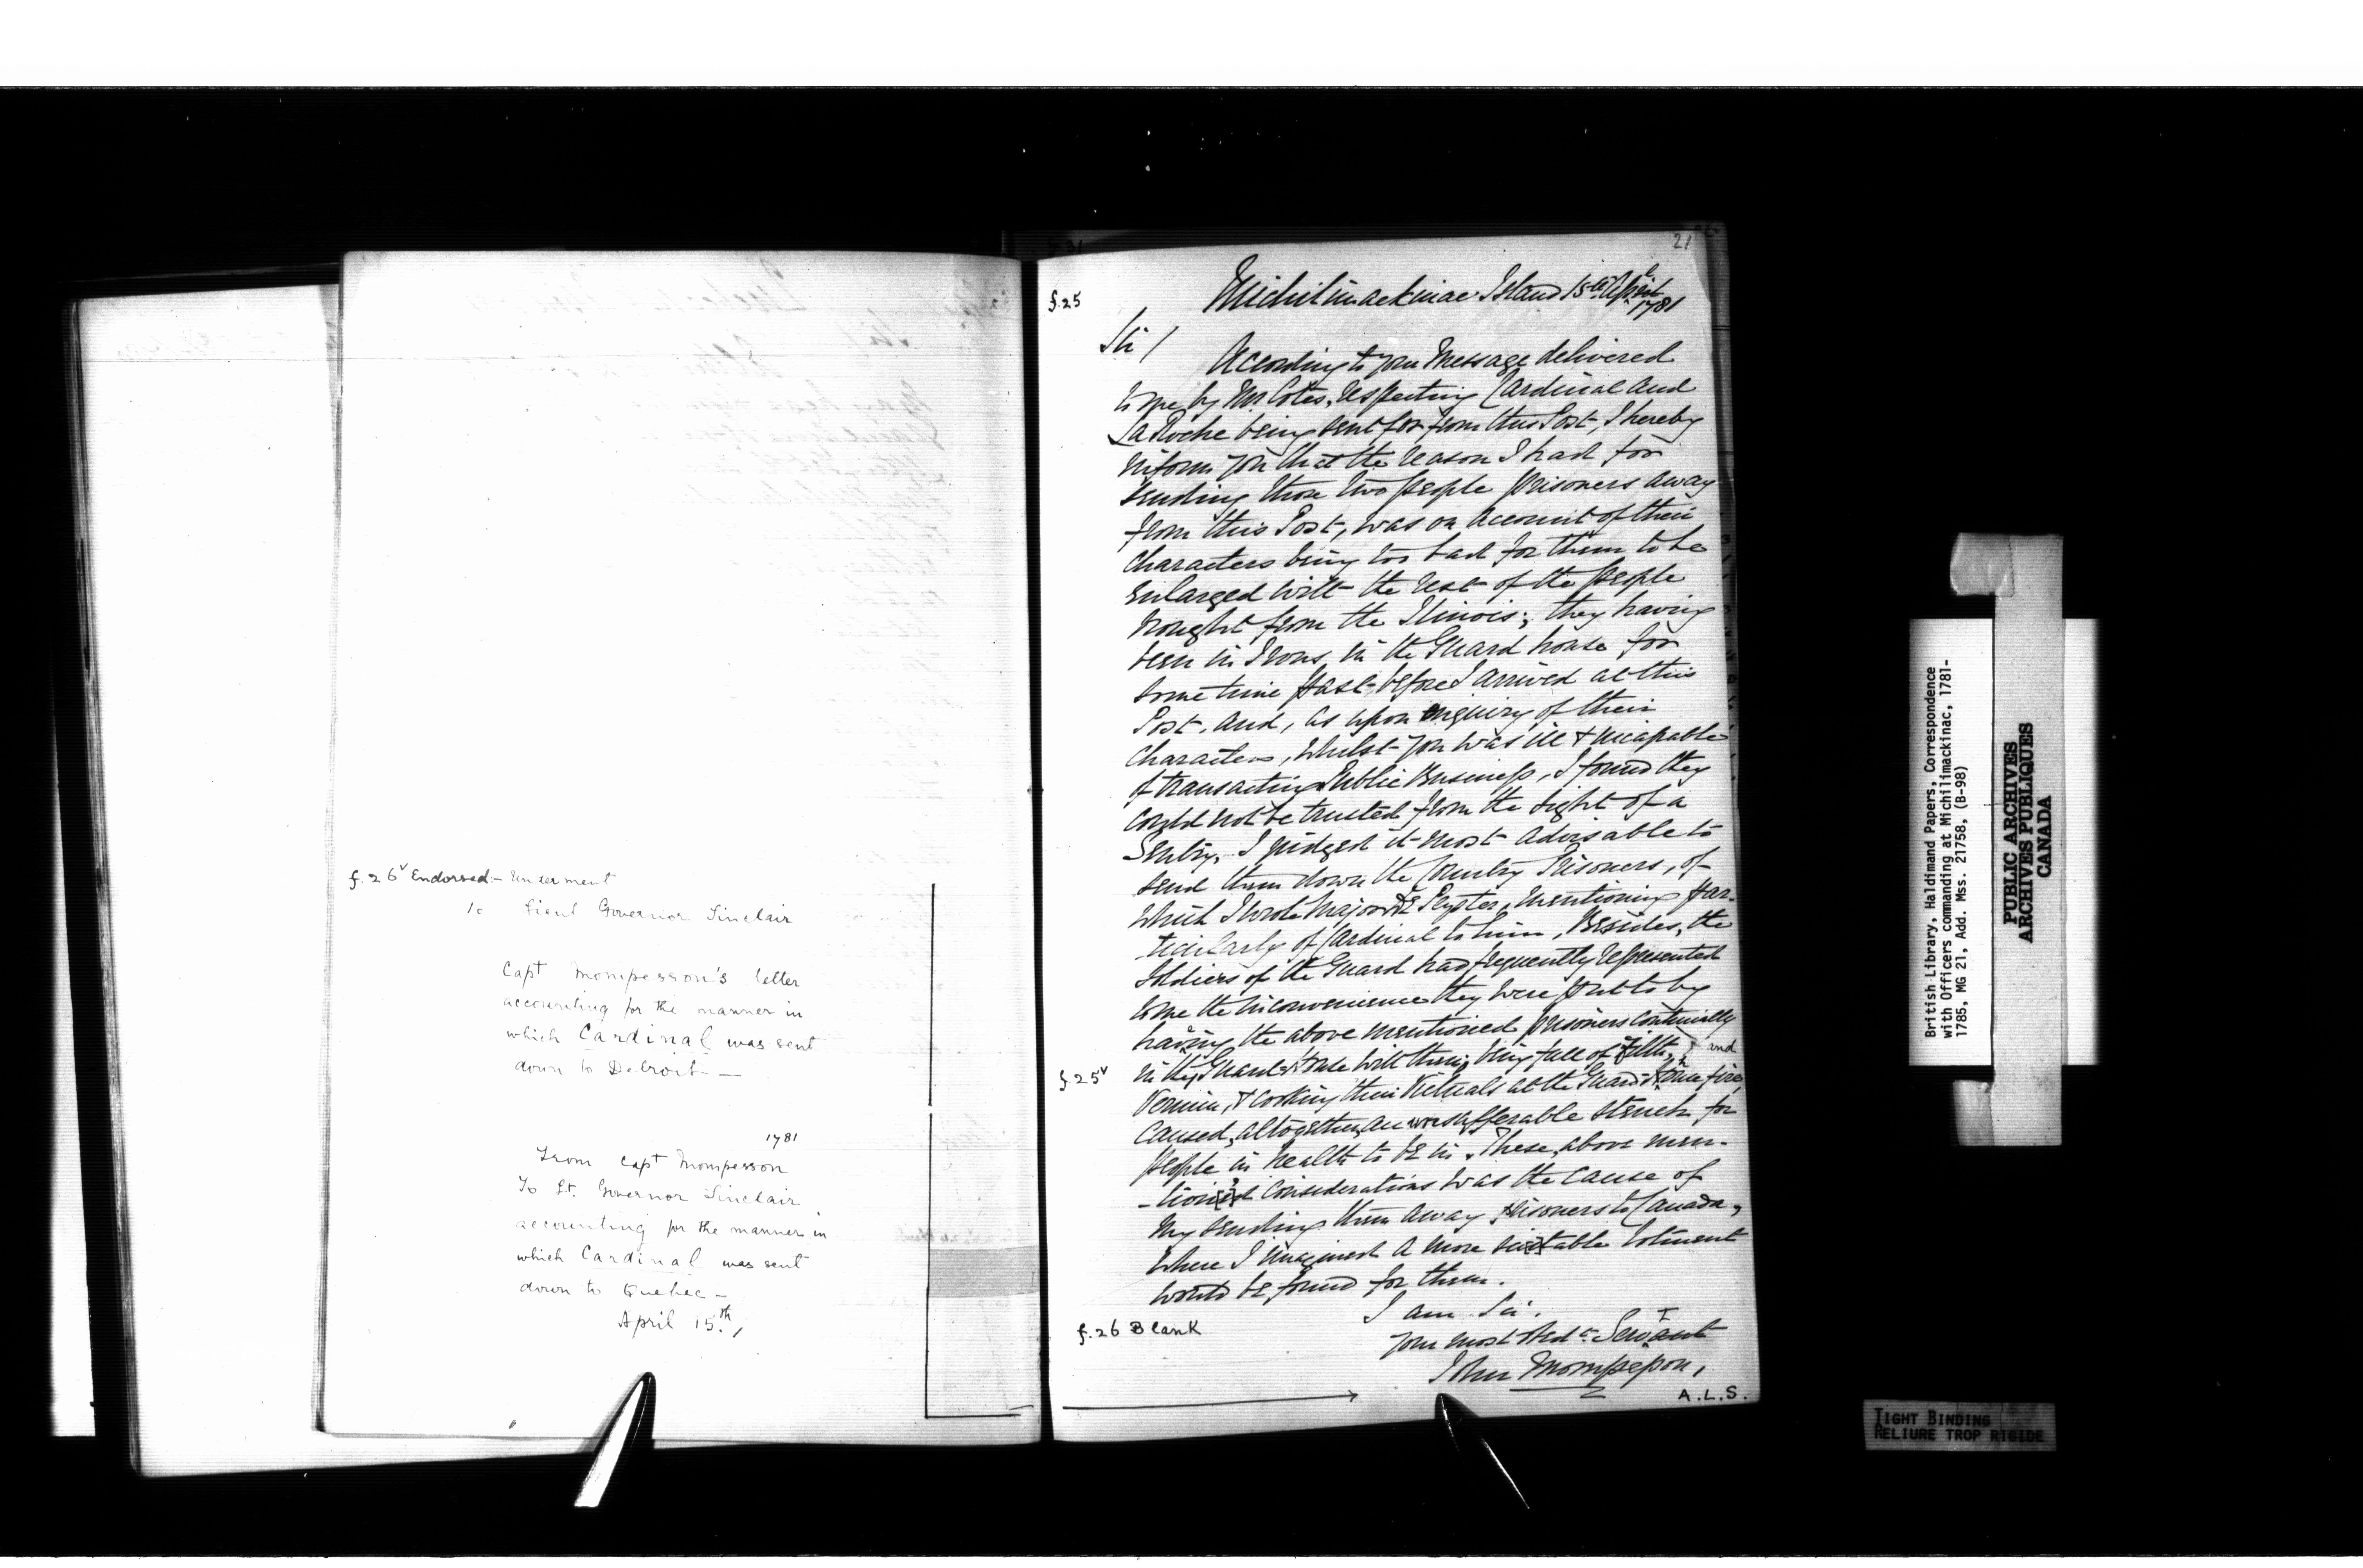 f.26v Endorsed:- Interment
to Lieut Governor Sinclair
Capt Mompesson's letter
accounting for the manner in
which Cardinal was sent
down to Detroit —
1781
From Capt Mompesson
To Lt. Governor Sinclair
accounting for the manner in
which Cardinal was sent
down to Quebec —
April 15th,
21
f.25
Michilimackinac Island 15th April
1781
Sir /
According to your Message delivered
to me by Mr Cotes, respecting Cardinal and
La Roche being sent for from this Post, I hereby
inform you that the reason I had for
sending those two people prisoners away
from this Post, was on account of their
Characters being too bad for them to be
enlarged with the rest of the people
brought from the Ilinois; they having
been in Irons, in the Guard house for
some time past before I arrived at this
Post. And, as upon enquiry of their
Characters, whilst you was ill & incapable
of transacting Public Business, I found they
could not be trusted from the sight of a
Sentry, I judged it most adviseable to
send them down the Country Prisoners, of
which I wrote Major De Peyster, mentioning par-
ticularly of Cardinal to him, Besides, the
Soldiers of the Guard had frequently represented
to me the inconvenience they were put to by
having the above mentioned prisoners continually
f.25v
in the Guard House with them, being full of Filth, and
Vermin, & cooking their Victuals at the Guard-House fire,
caused, altogether, an unsufferable stench for
people in health to be in. These, above men-
-tioned considerations was the cause of
my sending them away prisoners to Canada,
where I imagined a more suitable
would be found for them.
I am Sir.
your most Obedt. Servant
John Mompesson,
f.26 Blank
A.L.S.
British Library, Haldimand Papers, Correspondence
with Officers commanding at Michilimackinac, 1781-
1785, MG 21, Add. Mss. 21758, (B-98)
PUBLIC ARCHIVES
ARCHIVES PUBLIQUES
CANADA
TIGHT BINDING
RELIURE TROP RIGIDE